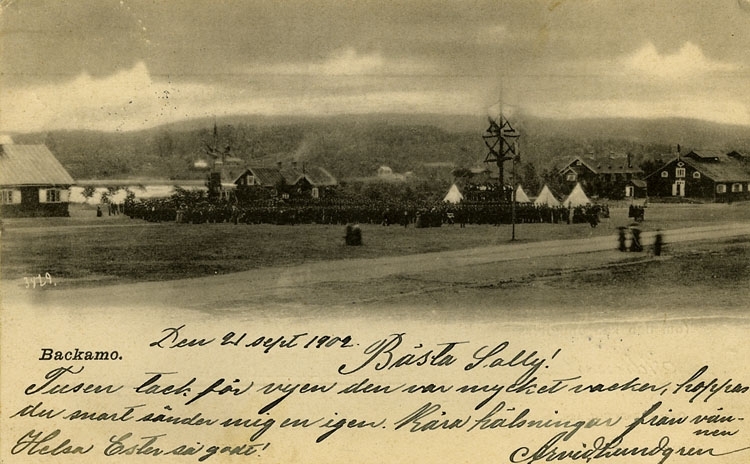 Backamo.
Den 21 sept 1902.
Bästa Sally!
Tusen tack för vyen den var mycket vacker, hoppas
du snart sänder mig en igen. Kära hälsningar från vän-
nen
Helsa Ester så godt!
Arvid Lundgren